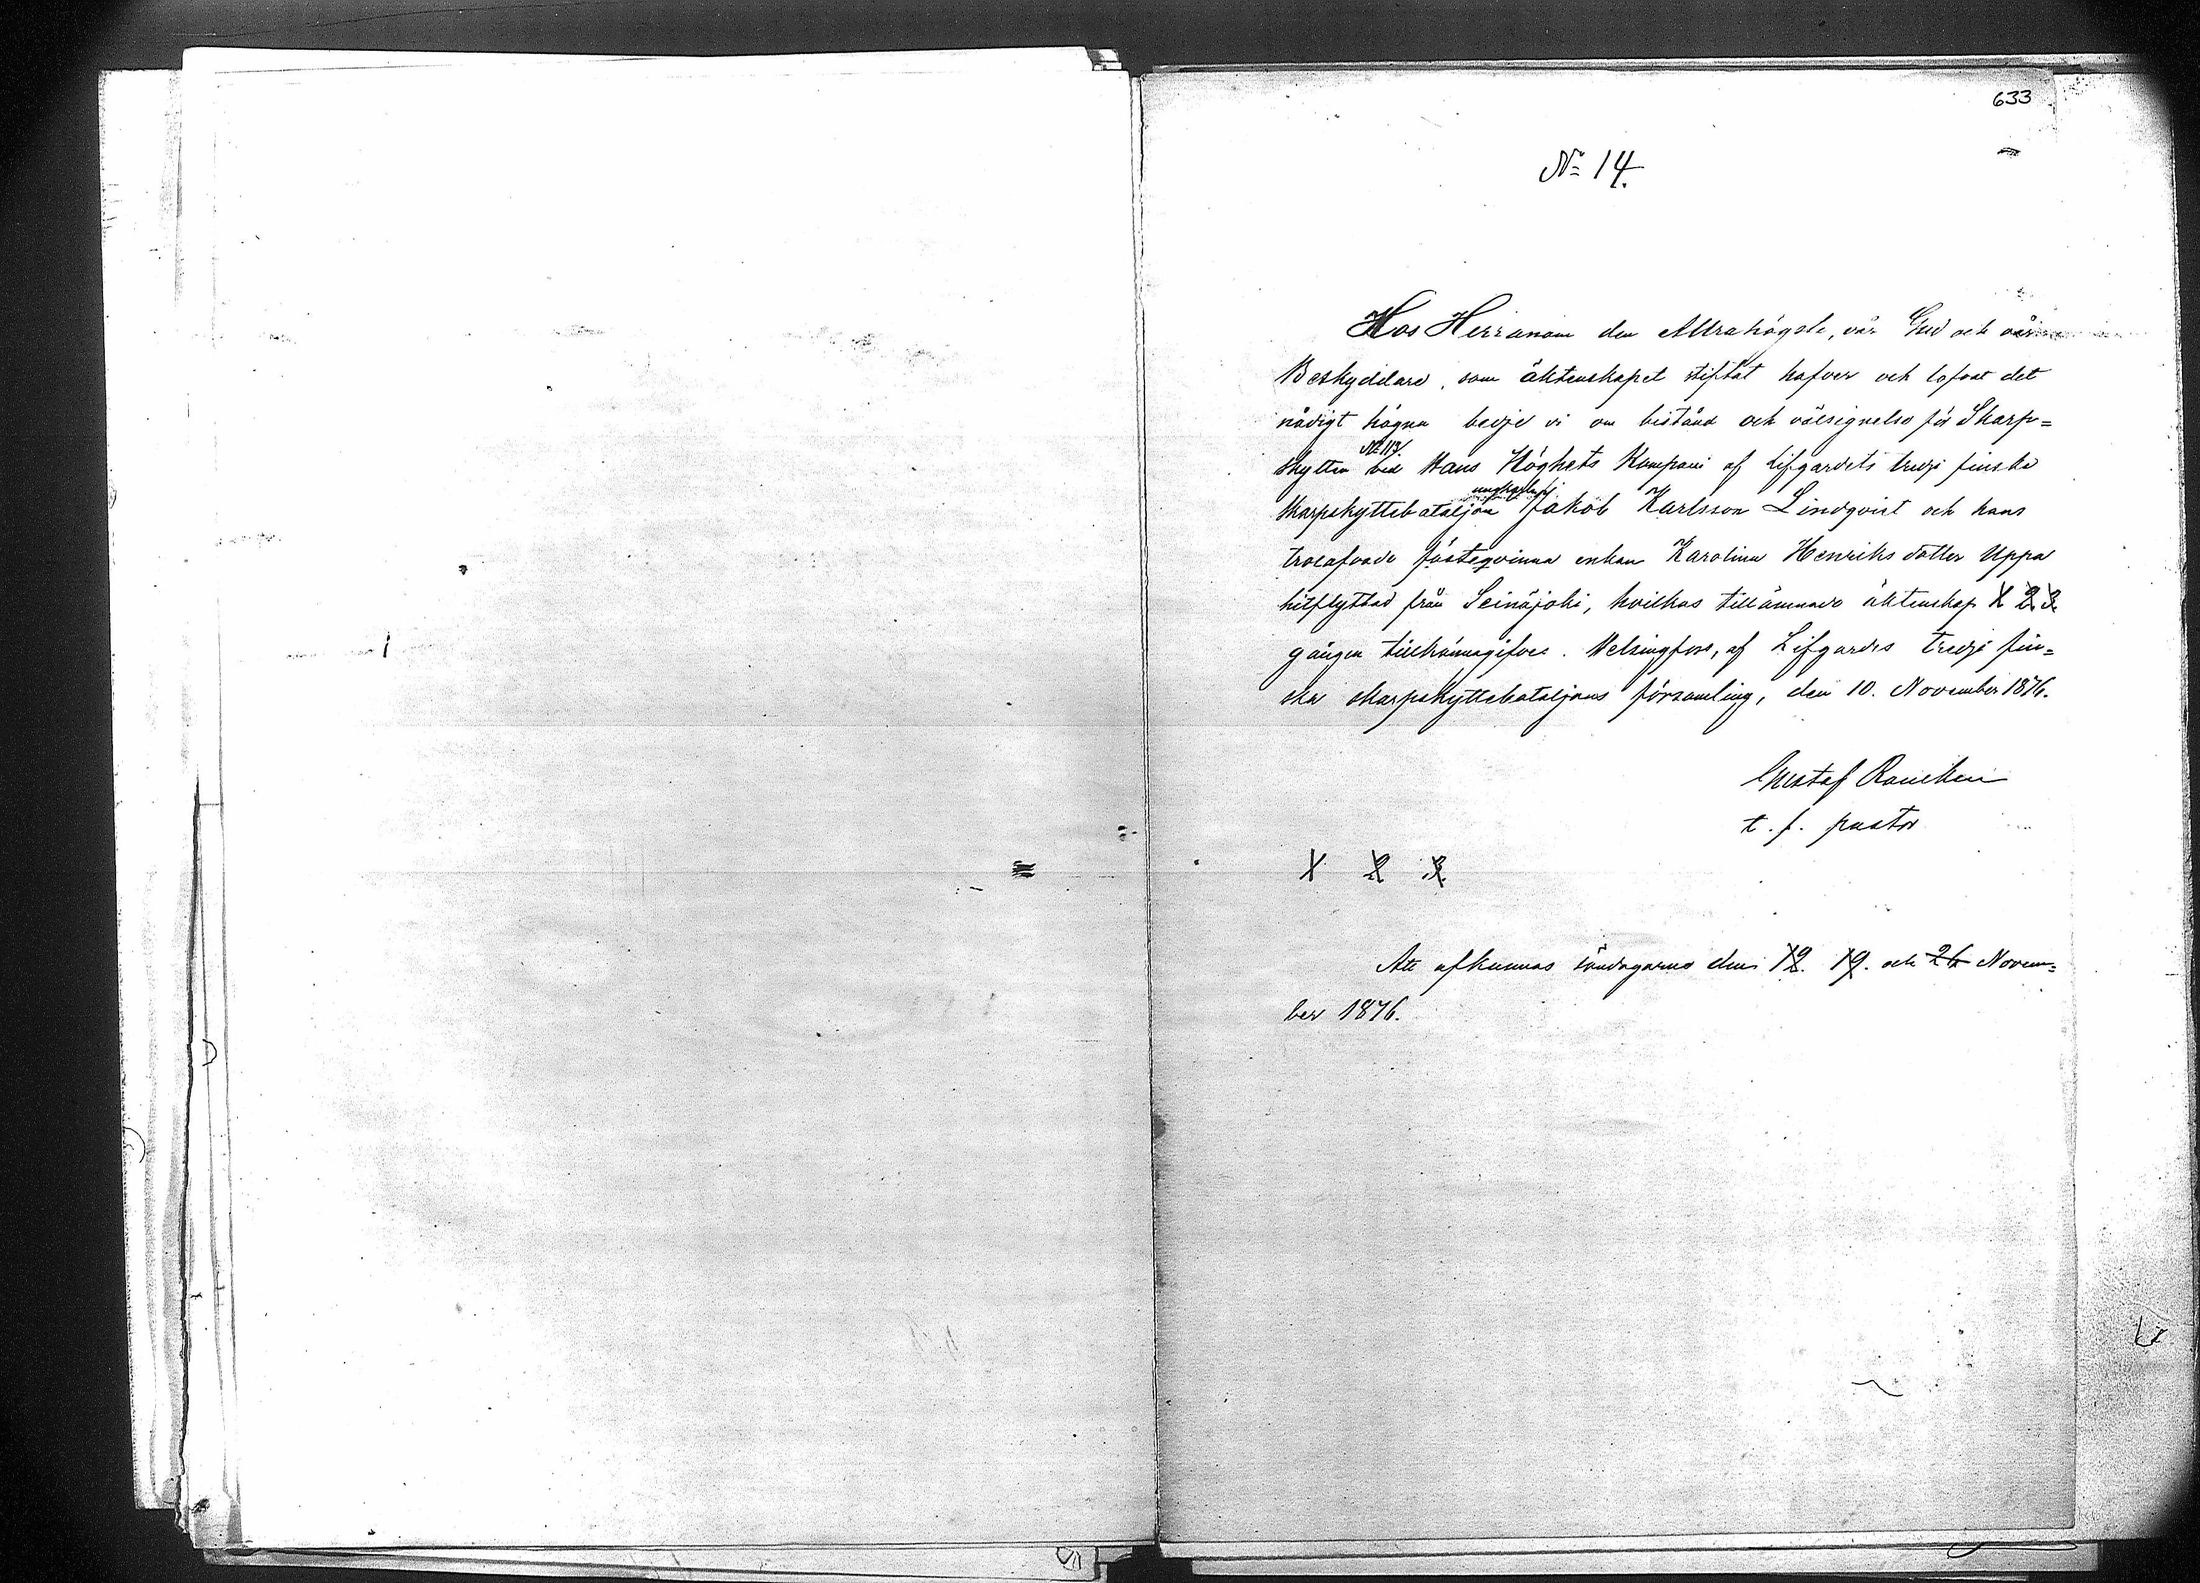 633
No 14.
Hos Herranom den Allrahögste, vår Gud och vår
Beskyddare, som äktenskapet stiftat hafver och lofvat det
nådigt hägna bedje vi om bistånd och välsignelse för Skarp=
skytten No 113/. vid Hans Höghets Kompani af Lifgardets tredje finska
skarpskyttebataljon ungkarlen Jakob Karlsson Lindqvist och hans
trolofvade fästeqvinna enkan Karolina Henriks dotter Uppa
hitflyttad från Seinäjoki, hvilkas tillämnade äktenskap 1 2. 3.
gången tillkännagifves. Helsingfors, af Lifgardets tredje fin=
ska skarpskyttebataljons församling, den 10. November 1876.
Gustaf
t. f. pastor
1 2 3.
Att afkunnas söndagarne den 12. 19. och 26 Novem=
ber 1876.